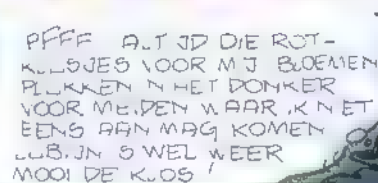 PFFF ALTIJD DIE ROT-
KLUSJES VOOR MIJ BLOEMEN
PLUKKEN IN HET DONKER
VOOR MEIDEN WAAR IK NIET
EENS AAN MAG KOMEN
IS WEL WEER
MOOI DE KLOS!